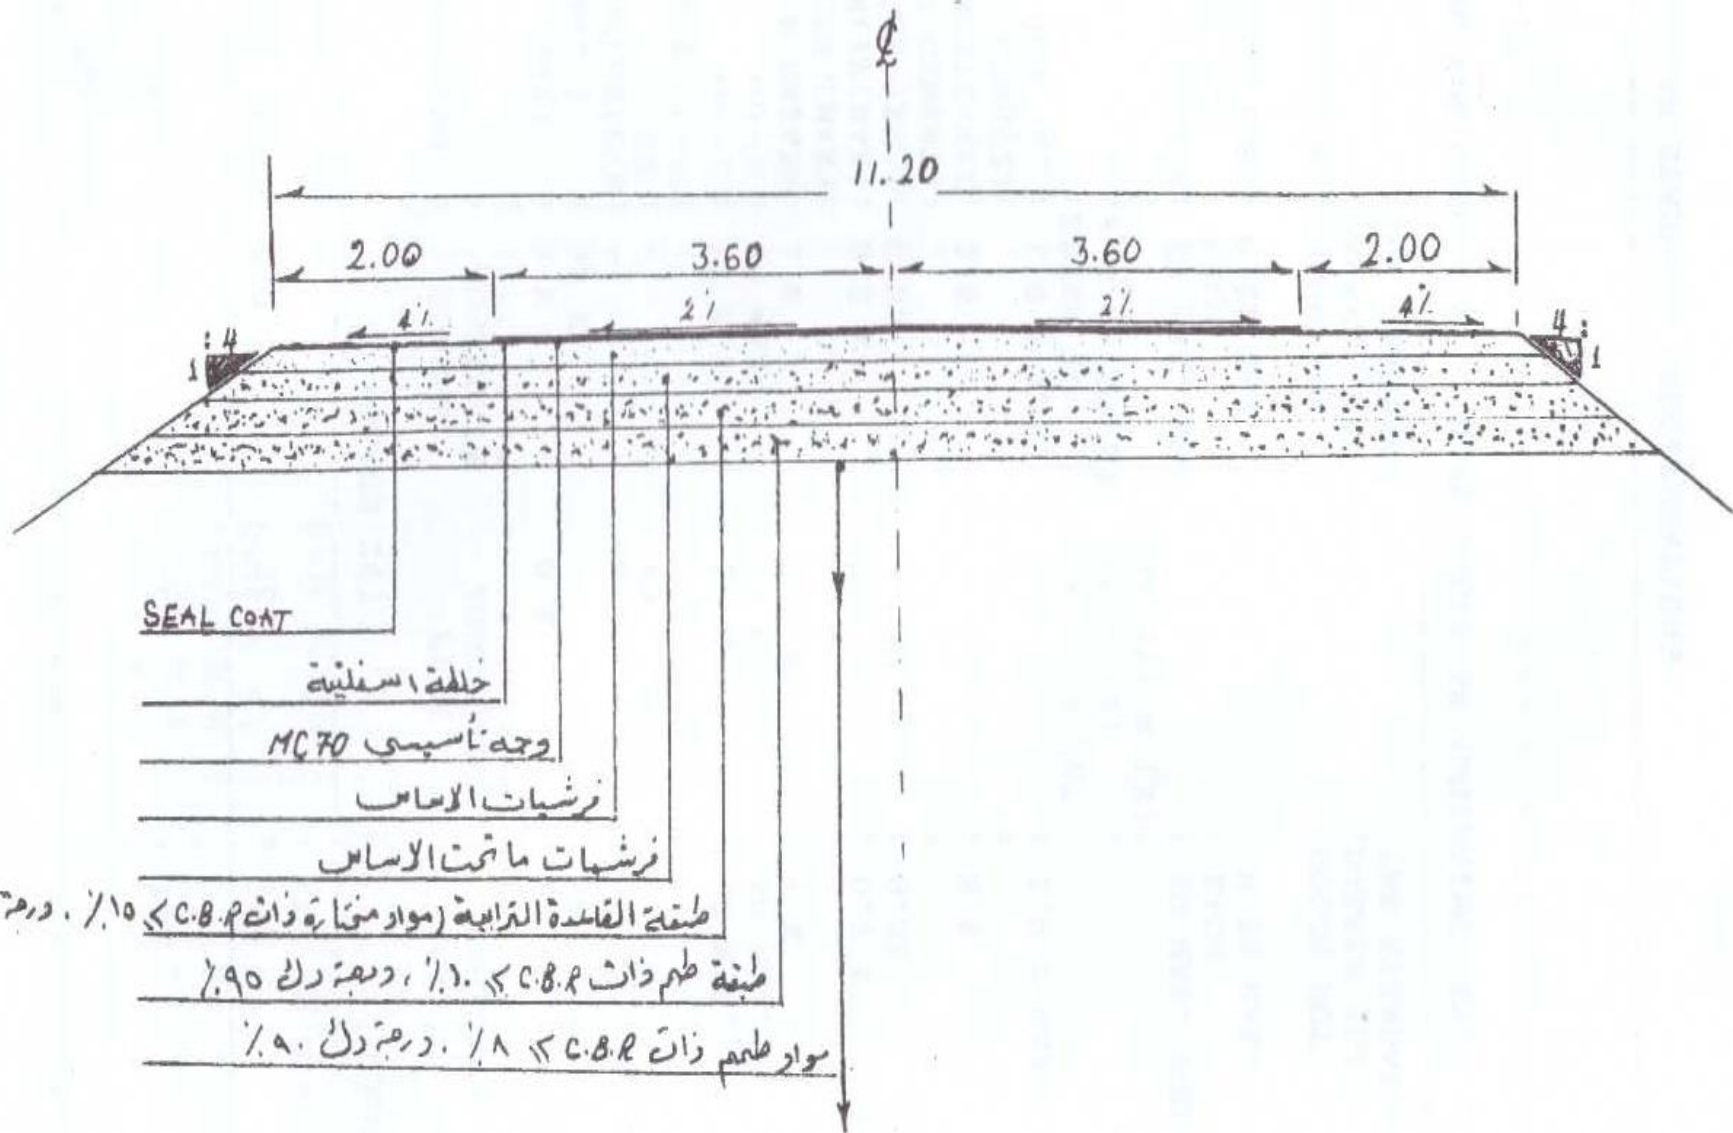 ℄
11.20
2.00 3.60 3.60 2.00
4% 2% 2% 4%
4 4
1 1
SEAL COAT
خلطة اسفلتية
وجه تأسيسي MC70
فرشيات الاساس
فرشيات ما تحت الاساس
طبقة القاعدة الترابية (مواد مختارة ذات C.B.R ≥ ١٥٪ ، درجة
طبقة طمم ذات C.B.R ≥ ١٠٪ ، درجة دك ٩٥٪
مواد طمم ذات C.B.R ≥ ٨٪ ، درجة دك ٩٠٪